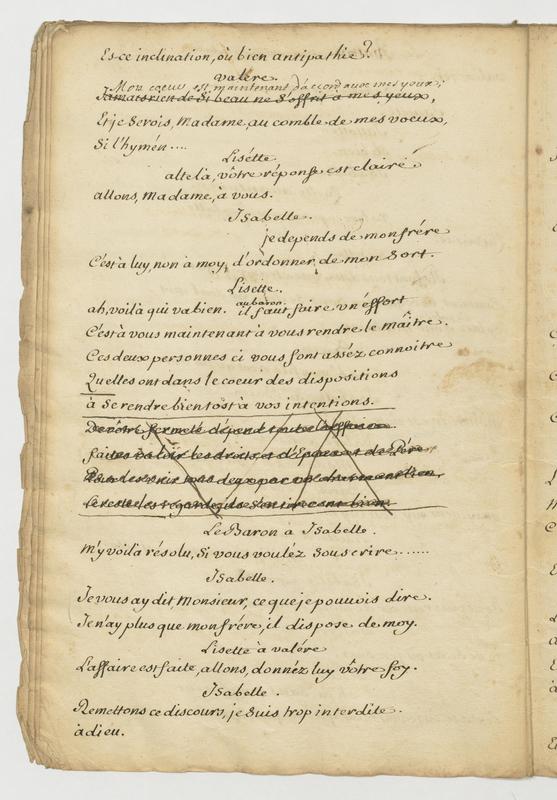 Es-ce inclination, où bien antipathie?
Valére.
Mon coeur est maintenant d'accord avec mes yeux;
Jamais rien de si beau ne s'offrit à mes yeux,
Et je serois, Madame, au comble de mes voeux,
Si l'hymén....
Lisétte.
alte là, vôtre réponse est claire
allons, Madame, à vous.
Isabelle.
je depends de mon frére
C'est à luy, non à moy, d'ordonner de mon Sort.
Lisette.
ah, voilà qui va bien. au baron. il faut faire un éffort
C'est à vous maintenant à vous rendre le maître.
Ces deux personnes ci vous font assèz connoitre
Quelles ont dans le coeur des dispositions
à Se rendre bientost à vos intentions.
De vôtre fermeté dépend toute l'affaire
faites valoir les droits, et d'Epoux et de Pére
le reste les regarde, ils s'en tireront bien.
Le Baron à Isabelle.
M'y voilà résolu, Si vous voulez Souscrire......
Isabelle.
Je vous ay dit Monsieur, ce que je pouvois dire.
Je n'ay plus que mon frére, il dispose de moy.
Lisette à valére
L'affaire est faite, allons, donnéz luy vôtre foy.
Isabelle.
Remettons ce discours, je suis trop interdite.
àdieu.